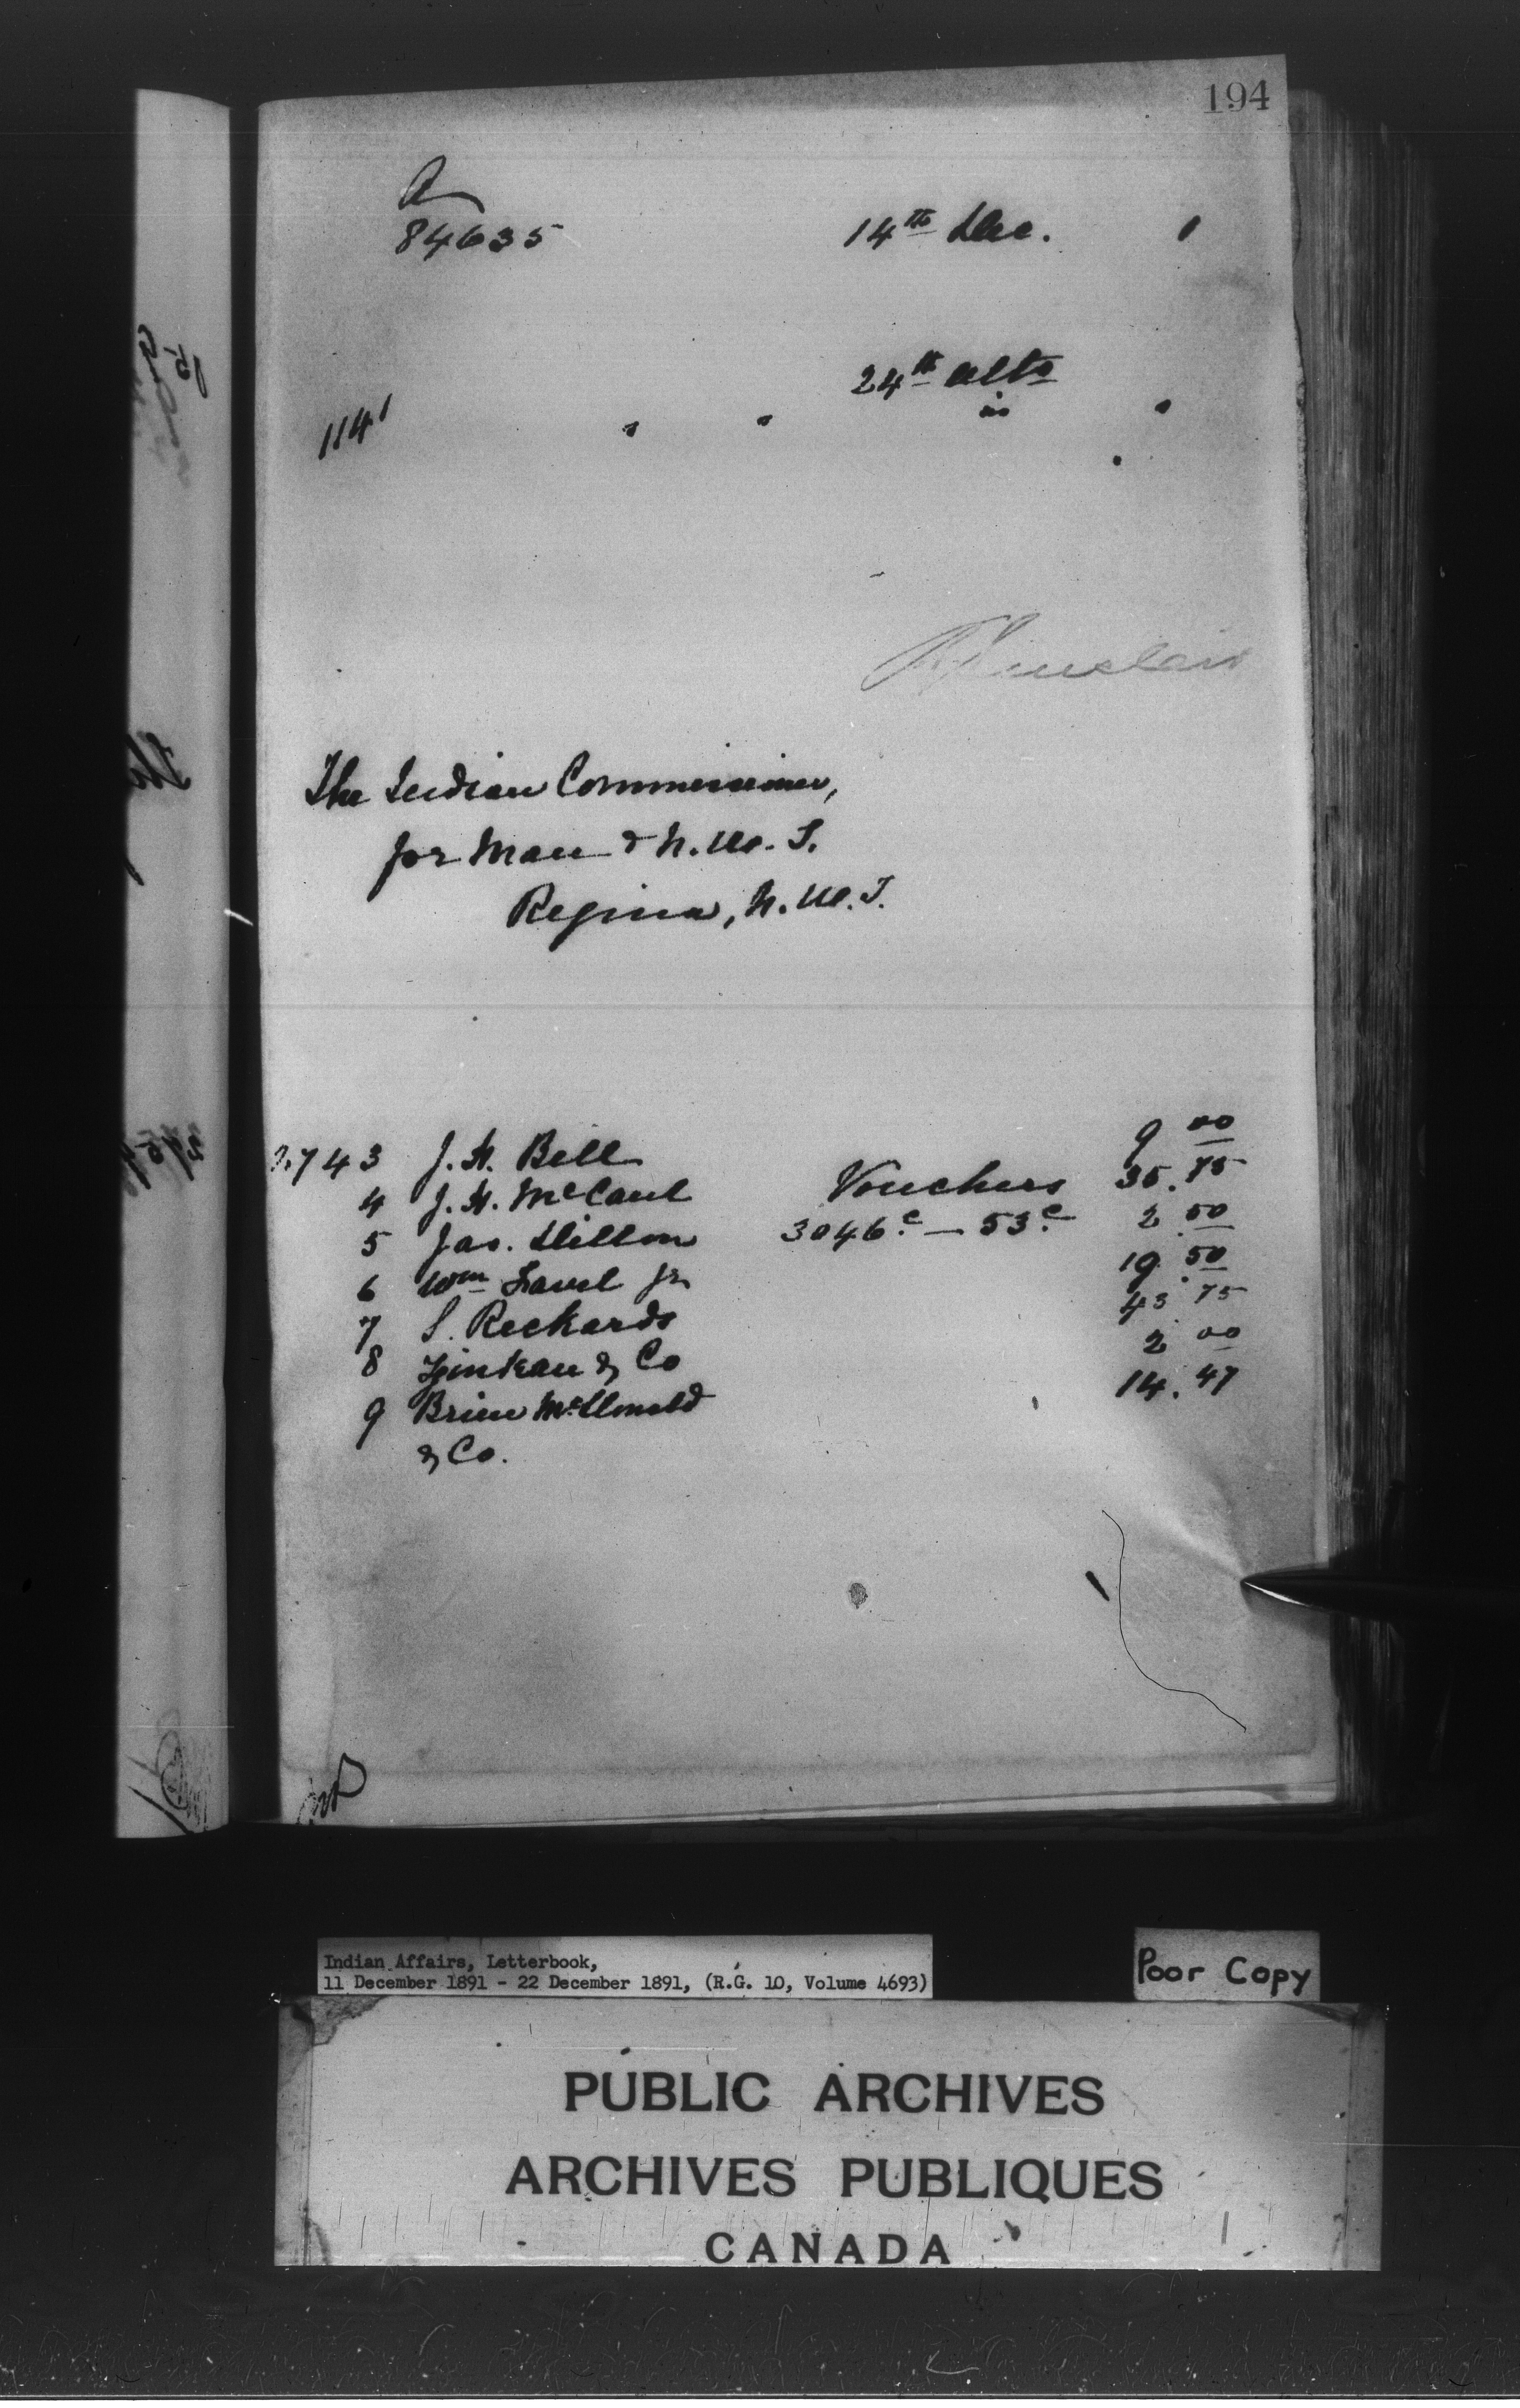 194
A
84635 14th Dec. 1
24th ulto
1141 " " in "
R Sinclair
The Indian Commissioner,
for Man & N. W. T.
Regina, N. W. T.
2743 J. H. Bell 9.00
4 J. H. McCaul Vouchers 35.75
5 Jas. Dillon 3046c — 53c 2.50
6 Wm Lauel Jr 19.50
7 S. Reckards 43.75
8 & Co 2.00
9 McDonald 14.47
& Co.
Indian Affairs, Letterbook,
11 December 1891 - 22 December 1891, (R.G. 10, Volume 4693)
Poor Copy
PUBLIC ARCHIVES
ARCHIVES PUBLIQUES
CANADA